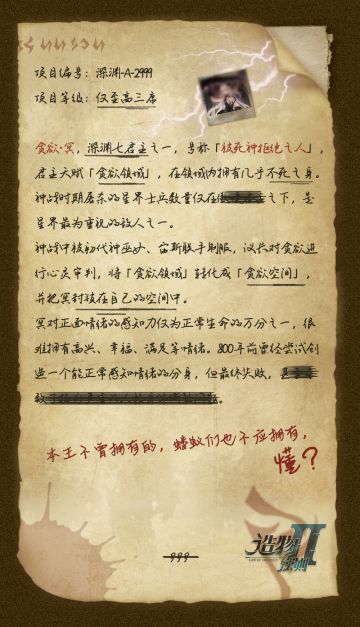 项目编号：深渊-A-2999
项目等级：仅至高三席
贪欲·冥，深渊七君主之一，号称「被死神拒绝之人」，
君主天赋「贪欲领域」，在领域内拥有几乎不死之身。
神战时期屠杀的星界士兵数量仅在之下，是
星界最为重视的敌人之一。
神战中被初代神巫女、宙斯联手制服，议长对贪欲进
行心灵审判，将「贪欲领域」转化成「贪欲空间」，
并把冥封放在自己的空间中。
冥对正面情绪的感知力仅为正常生命的万分之一，很
难拥有高兴、幸福、满足等情绪。800年前曾经尝试创
造一个能正常感知情绪的分身，但最终失败，
本王不曾拥有的，蝼蚁们也不应拥有，
懂？
999
造物法则II